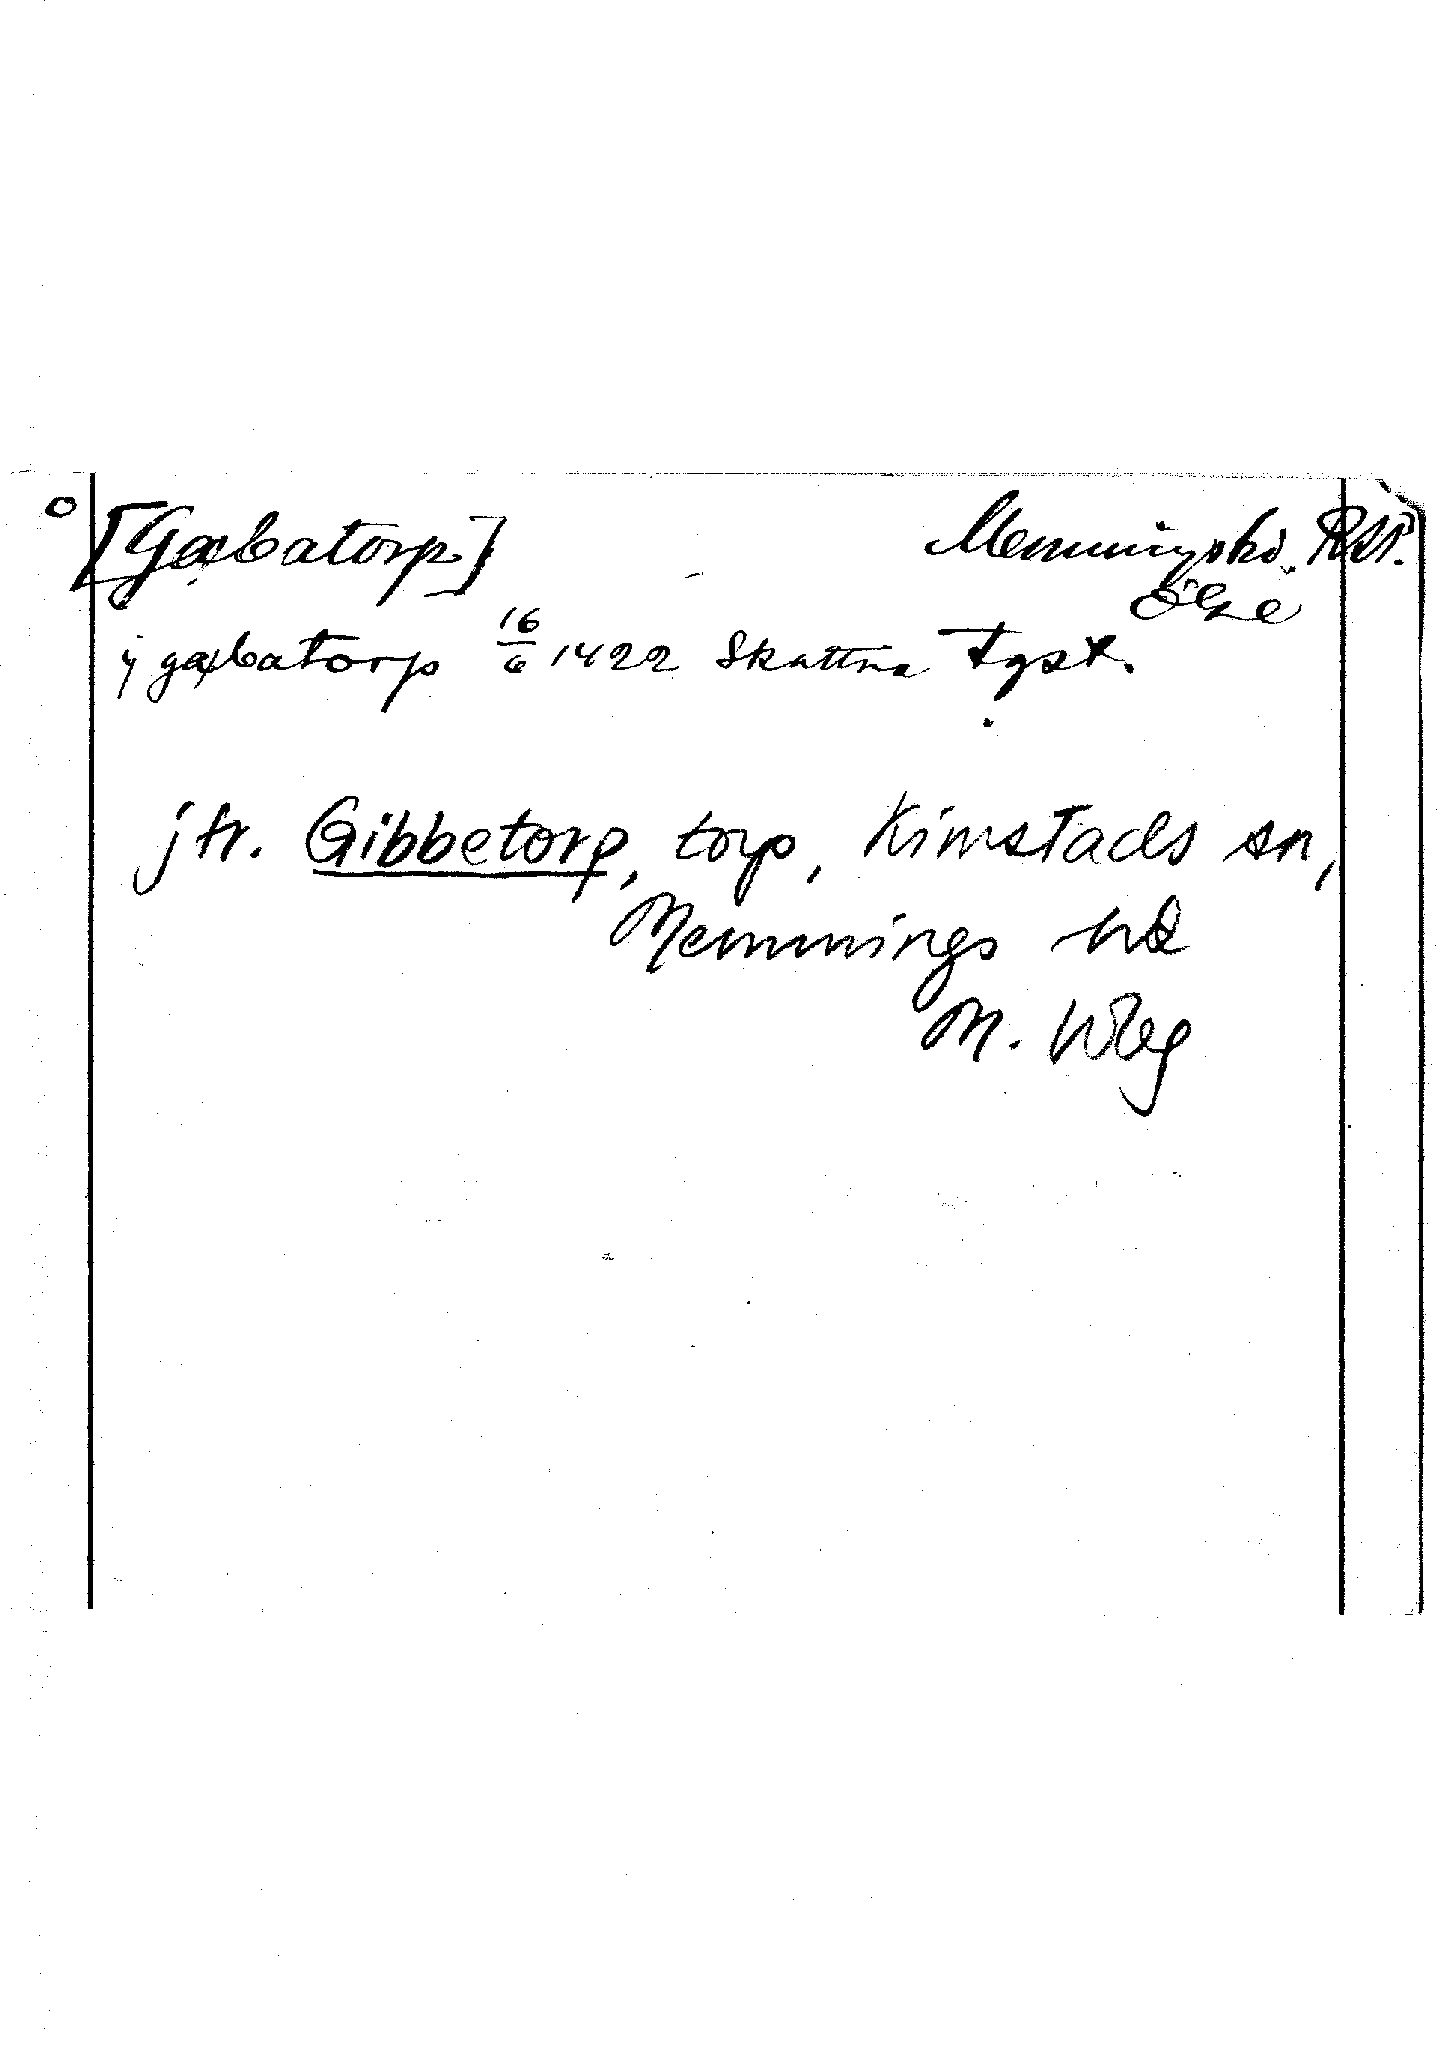 [Gæbatorp] Memmingshd. RAP.
Ög
ÿ gæbatorp 16/6 1422 Skuttna Fgst.
jfr. Gibbetorp, torp, Kimstads sn,
Memmings hd
M. Wbg